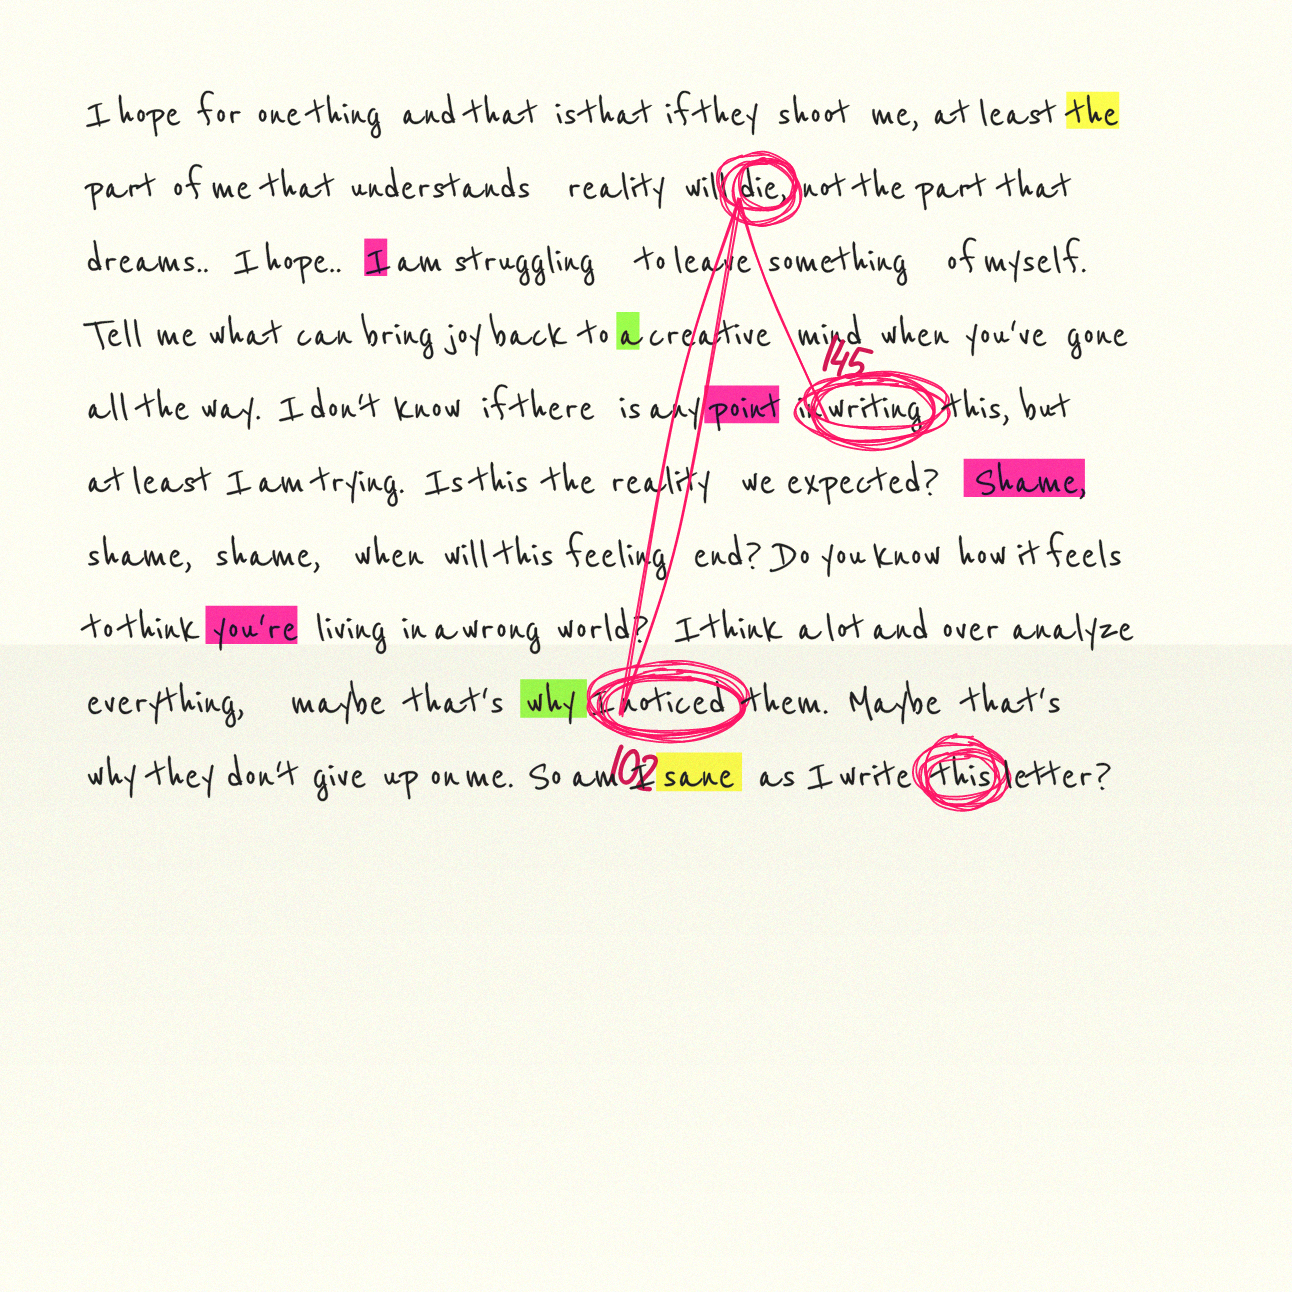 I hope for one thing and that is that if they shoot me, at least the
part of me that understands reality will die, not the part that
dreams.. I hope.. I am struggling to leave something of myself.
Tell me what can bring joy back to a creative mind when you've gone
145
all the way. I don't know if there is any point in writing this, but
at least I am trying. Is this the reality we expected? Shame,
shame, shame, when will this feeling end? Do you know how it feels
to think you're living in a wrong world? I think a lot and over analyze
everything, maybe that's why I noticed them. Maybe that's
why they don't give up on me. So am I sane as I write this letter?
102